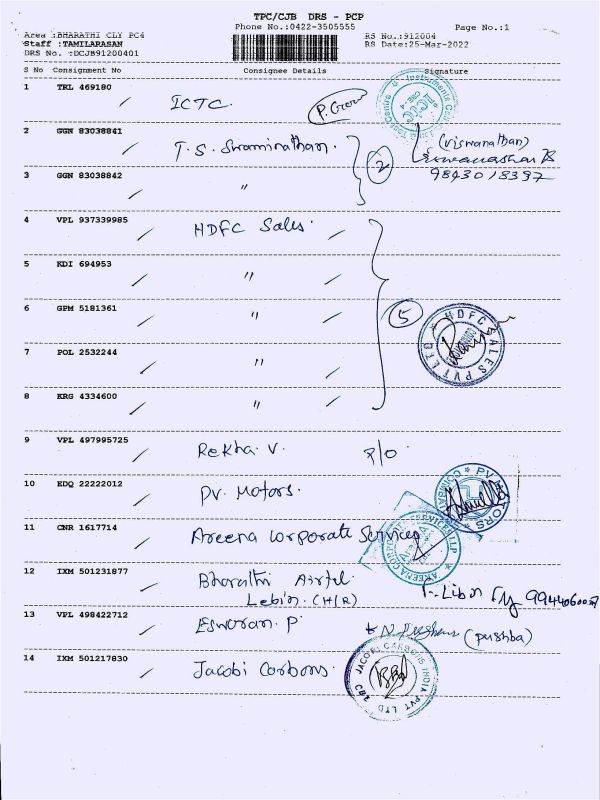 TPC/CJB DRS - PCP
Phone No.:0422-3505555
Page No.:1
Area :BHARATHI CLY PC4
RS No.:912004
Staff :TAMILARASAN
RS Date:25-Mar-2022
DRS No. :DCJB91200401
S No Consignment No Consignee Details Signature
1 TRL 469180 ICTC
2 GGN 83038841 T.S. Swaminathan. (viswanathan)
2
3 GGN 83038842 " 9843018397
4 VPL 937339985 HDFC Sales.
5 KDI 694953 "
6 GPM 5181361 " 5
HDFC SALES PVT LTD
7 POL 2532244 "
8 KRG 4334600 "
9 VPL 497995725 Rekha. V. P/O
10 EDQ 22222012 PV. Motors.
PV MOTORS
11 CNR 1617714 Areena Corporate Services
AREENA CORPORATE SERVICES LLP
12 IXM 501231877 Bharathi Airtel.
Lebin. (H/R) Libin
13 VPL 498422712 Eswaran. P. (pushba)
14 IXM 501217830 Jacobi Carbons.
JACOBI CARBONS INDIA PVT LTD